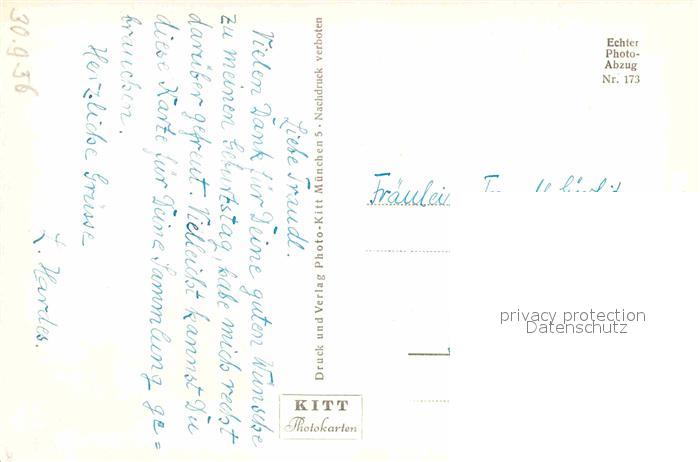 30.9.56
Liebe Traudl.
Vielen Dank für Deine guten Wünsche
zu meinen Geburtstag, habe mich recht
darüber gefreut. Vielleicht kannst Du
diese Karte für Deine Sammlung ge=
brauchen.
Herzliche Grüsse
L. Hardes.
Druck und Verlag Photo-Kitt München 5 · Nachdruck verboten
KITT
Photokarten
Echter
Photo-
Abzug
Nr. 173
Fräulein
privacy protection
Datenschutz